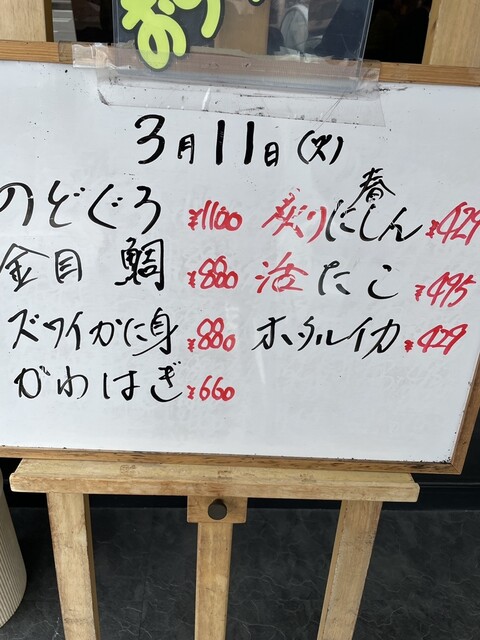 おす
3月11日(火)
のどぐろ ¥1100
金目鯛 ¥880
ズワイかに身 ¥880
かわはぎ ¥660
炙り春にしん ¥429
活たこ ¥495
ホタルイカ ¥429